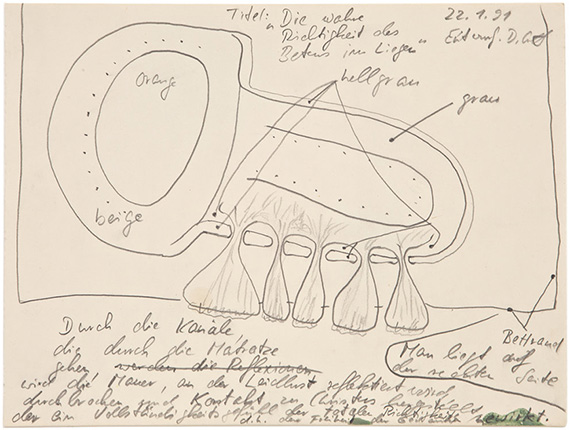 Titel: "Die wahre
Richtigkeit des
Betens im Liegen"
22.1.91
Entwurf.
Orange
hellgrau
grau
beige
Bettrand
Durch die Kanäle
die durch die Matratze
gehen werden die Reflexionen
Man liegt auf
der rechten Seite
wird die Mauer, an der Leidlust reflektiert wird
durchbrochen und Kontakt zu Christus
der ein Vollständigkeitsgefühl der totalen Richtigkeit
d.h. der bewirkt.